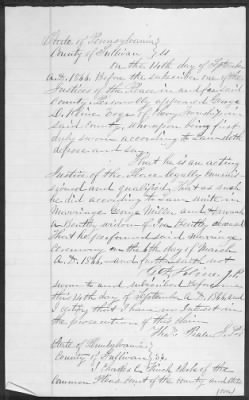 State of Pennsylvania }
County of Sullivan } SS
On the 14th day of September
A.D. 1866. Before the subscriber one of the
Justices of the Peace in and for said
County Personally appeared George
D. Esqr of Township in
said county, who upon being first
duly sworn according to law doth
depose and say,
That he is an acting
Justice of the Peace legally commis-
sioned and qualified, That as such
he did according to law unite in
Marriage George Miller and Hannah
A Bentley widow of Bentley deceased
That he performed said marriage
ceremony on the 6th day of March
A.D. 1866, and further saith not
J.P.
Sworn to and subscribed before me
this 14th day of September A.D. 1866 and
I certify that I have no interest in
the prosecution of this claim.
State of Pennsylvania }
County of Sullivan } SS.
I Clerk of the
Common Pleas court of the county and state
(over)